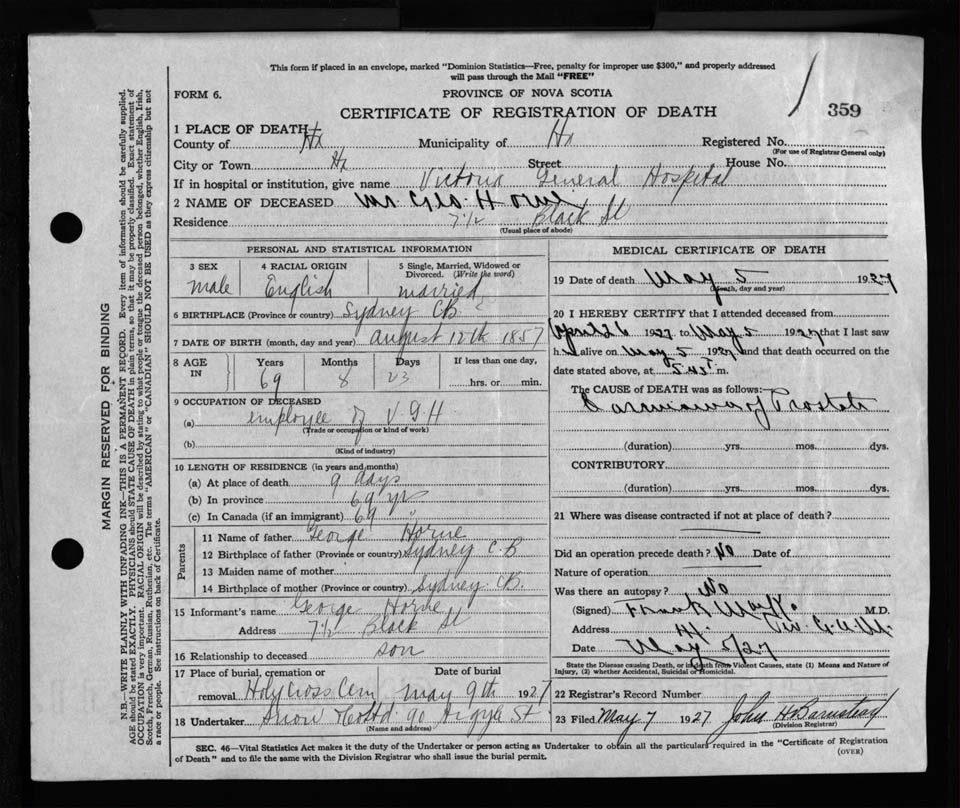 This form if placed in an envelope, marked "Dominion Statistics—Free, penalty for improper use $300," and properly addressed
will pass through the Mail "FREE"
FORM 6.
PROVINCE OF NOVA SCOTIA
CERTIFICATE OF REGISTRATION OF DEATH
359
1 PLACE OF DEATH
County of Hx Municipality of Hx Registered No.
(For use of Registrar General only)
City or Town Hx Street House No.
If in hospital or institution, give name Victoria General Hospital
2 NAME OF DECEASED Mr. Geo. Horne
Residence 7½ Black St
(Usual place of abode)
PERSONAL AND STATISTICAL INFORMATION
3 SEX 4 RACIAL ORIGIN 5 Single, Married, Widowed or
Divorced. (Write the word)
male English married
6 BIRTHPLACE (Province or country) Sydney CB
7 DATE OF BIRTH (month, day and year) August 12th 1857
8 AGE IN Years Months Days If less than one day,
69 8 23 hrs. or min.
9 OCCUPATION OF DECEASED
(a) employee of V G H
(Trade or occupation or kind of work)
(b)
(Kind of industry)
10 LENGTH OF RESIDENCE (in years and months)
(a) At place of death 9 days
(b) In province 69 yrs
(c) In Canada (if an immigrant) 69 "
Parents
11 Name of father George Horne
12 Birthplace of father (Province or country) Sydney C.B
13 Maiden name of mother
14 Birthplace of mother (Province or country) Sydney CB.
15 Informant's name George Horne
Address 7½ Black St
16 Relationship to deceased son
17 Place of burial, cremation or Date of burial
removal Holy Cross Cem May 9th 1927
18 Undertaker Snow & Co Ltd 90 Argyle St
(Name and address)
MEDICAL CERTIFICATE OF DEATH
19 Date of death May 5 1927
(Month, day and year)
20 I HEREBY CERTIFY that I attended deceased from
April 26 1927 to May 5 1927 that I last saw
h alive on May 5 1927 and that death occurred on the
date stated above, at 5.45 m.
The CAUSE OF DEATH was as follows:
Carcinoma of Prostate
(duration) yrs. mos. dys.
CONTRIBUTORY
(duration) yrs. mos. dys.
21 Where was disease contracted if not at place of death?
Did an operation precede death? No Date of
Nature of operation
Was there an autopsy? No
(Signed) Frank M.D.
Address
Date May 5/27
State the Disease causing Death, or in death from Violent Causes, state (1) Means and Nature of
Injury, (2) whether Accidental, Suicidal or Homicidal.
22 Registrar's Record Number
23 Filed May 7 1927 John H Barnstead
(Division Registrar)
SEC. 46—Vital Statistics Act makes it the duty of the Undertaker or person acting as Undertaker to obtain all the particulars required in the "Certificate of Registration
of Death" and to file the same with the Division Registrar who shall issue the burial permit.
(OVER)
MARGIN RESERVED FOR BINDING
N.B.—WRITE PLAINLY WITH UNFADING INK—THIS IS A PERMANENT RECORD. Every item of information should be carefully supplied.
AGE should be stated EXACTLY. PHYSICIANS should STATE CAUSE OF DEATH in plain terms, so that it may be properly classified. Exact statement of
OCCUPATION is very important. RACIAL ORIGIN will be described by stating to what people or tongue the deceased person belonged, whether English, Irish,
Scotch, French, German, Russian, Ruthenian, etc. The terms "AMERICAN" or "CANADIAN" SHOULD NOT BE USED as they express citizenship but not
a race or people. See instructions on back of Certificate.